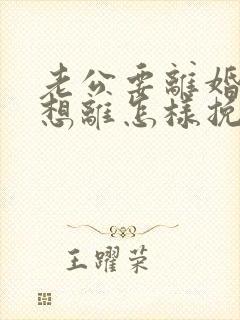 老公要離婚
想離怎樣挽
王躍荣